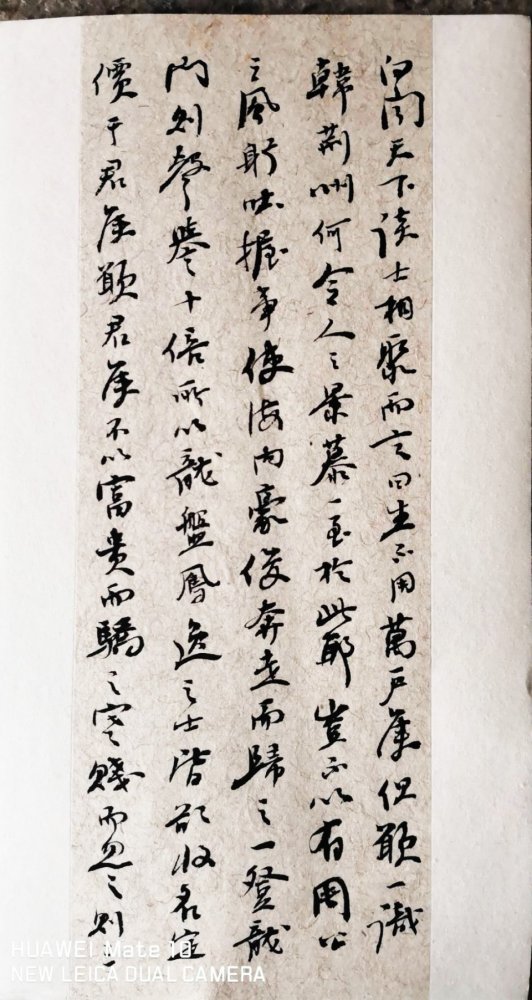 白聞天下談士相聚而言曰生不用萬戶侯但願一識
韓荊州何令人之景慕一至於此耶豈不以有周公
之風躬吐握事使海內豪俊奔走而歸之一登龍
門則聲譽十倍所以龍盤鳳逸之士皆欲收名定
價于君侯願君侯不以富貴而驕之寒賤而忽之則
HUAWEI Mate 10
NEW LEICA DUAL CAMERA